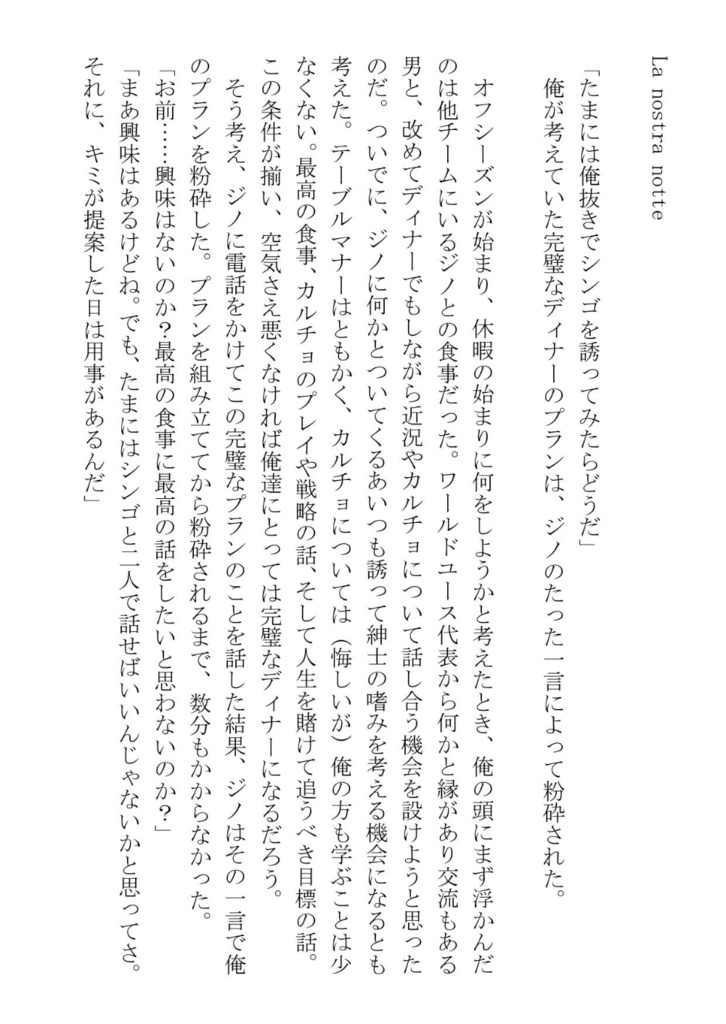 La nostra notte
「たまには俺抜きでシンゴを誘ってみたらどうだ」
俺が考えていた完璧なディナーのプランは、ジノのたった一言によって粉砕された。
オフシーズンが始まり、休暇の始まりに何をしようかと考えたとき、俺の頭にまず浮かんだ
のは他チームにいるジノとの食事だった。ワールドユース代表から何かと縁があり交流もある
男と、改めてディナーでもしながら近況やカルチョについて話し合う機会を設けようと思った
のだ。ついでに、ジノに何かとついてくるあいつも誘って紳士の嗜みを考える機会になるとも
考えた。テーブルマナーはともかく、カルチョについては（悔しいが）俺の方も学ぶことは少
なくない。最高の食事、カルチョのプレイや戦略の話、そして人生を賭けて追うべき目標の話。
この条件が揃い、空気さえ悪くなければ俺達にとっては完璧なディナーになるだろう。
そう考え、ジノに電話をかけてこの完璧なプランのことを話した結果、ジノはその一言で俺
のプランを粉砕した。プランを組み立ててから粉砕されるまで、数分もかからなかった。
「お前……興味はないのか？最高の食事に最高の話をしたいと思わないのか？」
「まあ興味はあるけどね。でも、たまにはシンゴと二人で話せばいいんじゃないかと思ってさ。
それに、キミが提案した日は用事があるんだ」